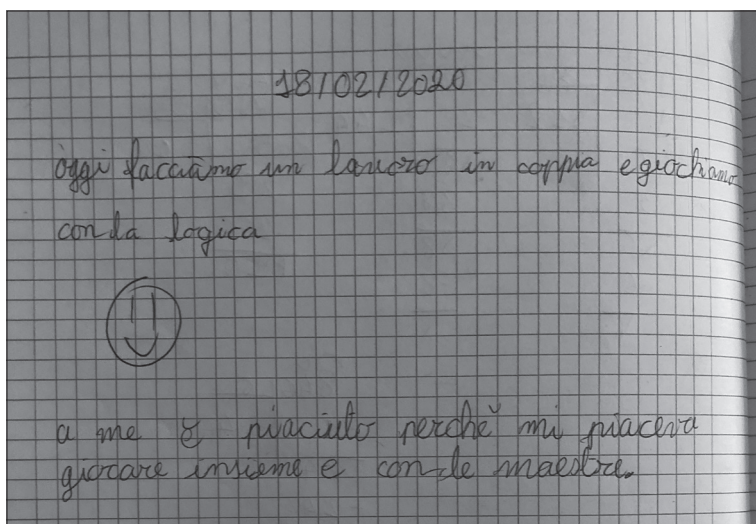 18/02/2020
oggi facciamo un lavoro in coppia e giochamo
con la logica
a me è piaciuto perché mi piaceva
giocare insieme e con le maestre.